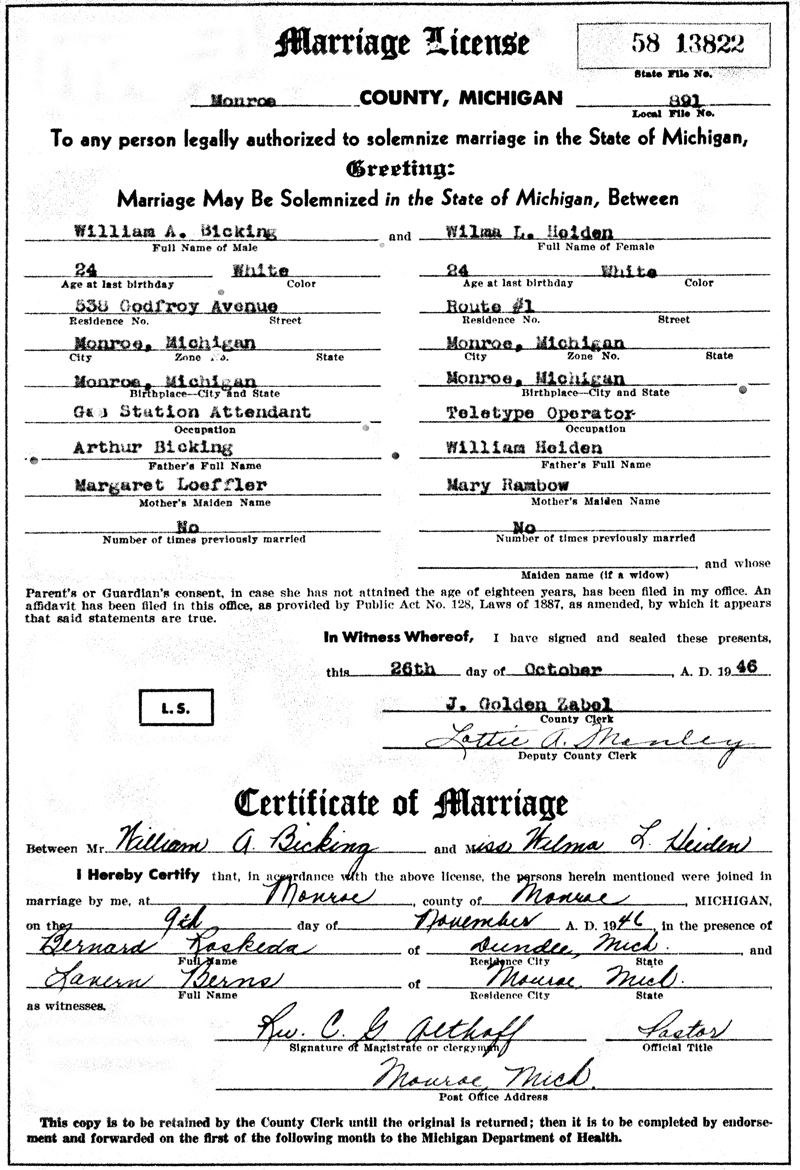 Marriage License
58 13822
State File No.
Monroe COUNTY, MICHIGAN 891
Local File No.
To any person legally authorized to solemnize marriage in the State of Michigan,
Greeting:
Marriage May Be Solemnized in the State of Michigan, Between
William A. Bicking and Wilma L. Heiden
Full Name of Male Full Name of Female
24 White 24 White
Age at last birthday Color Age at last birthday Color
538 Godfroy Avenue Route #1
Residence No. Street Residence No. Street
Monroe, Michigan Monroe, Michigan
City Zone No. State City Zone No. State
Monroe, Michigan Monroe, Michigan
Birthplace—City and State Birthplace—City and State
Gas Station Attendant Teletype Operator
Occupation Occupation
Arthur Bicking William Heiden
Father's Full Name Father's Full Name
Margaret Loeffler Mary Rambow
Mother's Maiden Name Mother's Maiden Name
No No
Number of times previously married Number of times previously married
, and whose
Maiden name (if a widow)
Parent's or Guardian's consent, in case she has not attained the age of eighteen years, has been filed in my office. An
affidavit has been filed in this office, as provided by Public Act No. 128, Laws of 1887, as amended, by which it appears
that said statements are true.
In Witness Whereof, I have signed and sealed these presents,
this 26th day of October, A. D. 1946
L. S.
J. Golden Zabel
County Clerk
Lottie A. Manley
Deputy County Clerk
Certificate of Marriage
Between Mr. William A. Bicking and Miss Wilma L. Heiden
I Hereby Certify that, in accordance with the above license, the persons herein mentioned were joined in
marriage by me, at Monroe, county of Monroe, MICHIGAN,
on the 9th day of November A. D. 1946, in the presence of
Bernard Roskeda of Dundee, Mich. and
Full Name Residence City State
Lavern Berns of Monroe, Mich.
Full Name Residence City State
as witnesses.
Rev. C. G Althoff Pastor
Signature of Magistrate or clergyman Official Title
Monroe, Mich.
Post Office Address
This copy is to be retained by the County Clerk until the original is returned; then it is to be completed by endorse-
ment and forwarded on the first of the following month to the Michigan Department of Health.